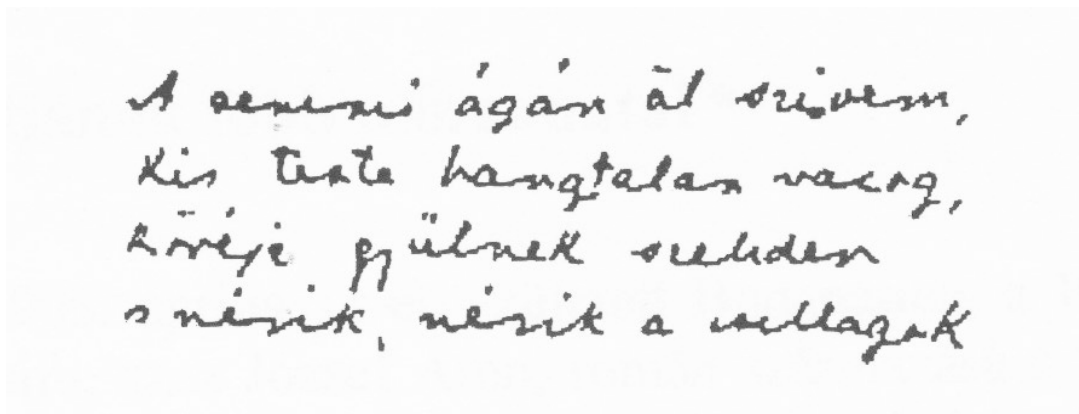 A semmi ágán ül szivem,
kis teste hangtalan vacog,
köréje gyülnek szeliden
s nézik, nézik a csillagok